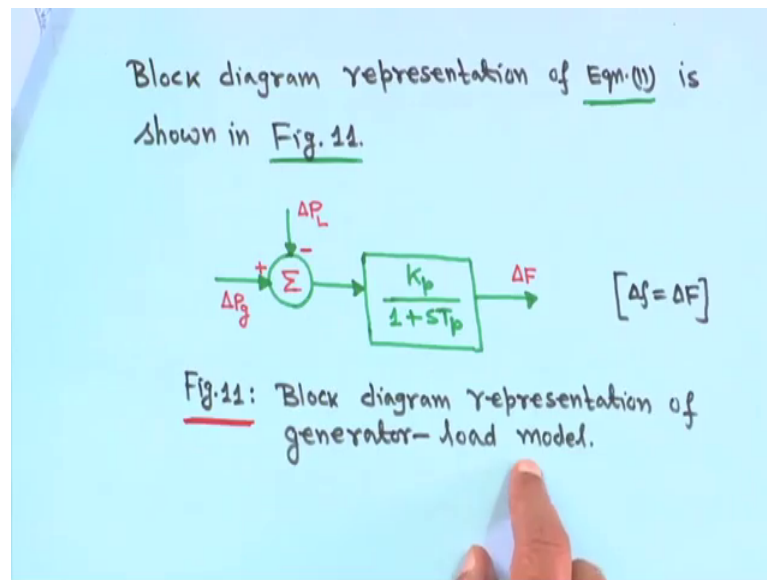 Block diagram representation of Eqn.(11) is
shown in Fig. 11.
ΔP_L
+ −
Σ
ΔP_g
K_p
1+ST_p
ΔF
[Δf = ΔF]
Fig.11: Block diagram representation of
generator-load model.